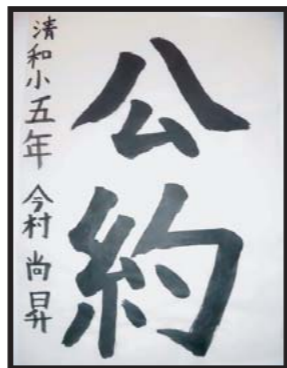 公約
清和小五年 今村 尚昇